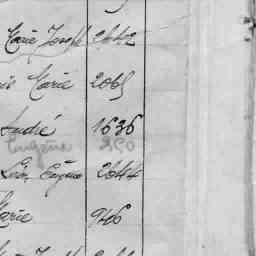 Marie Joseph 2642
Marie 2065
André 1636
Eugène 250
Léon, Eugène 2644
Marie 946